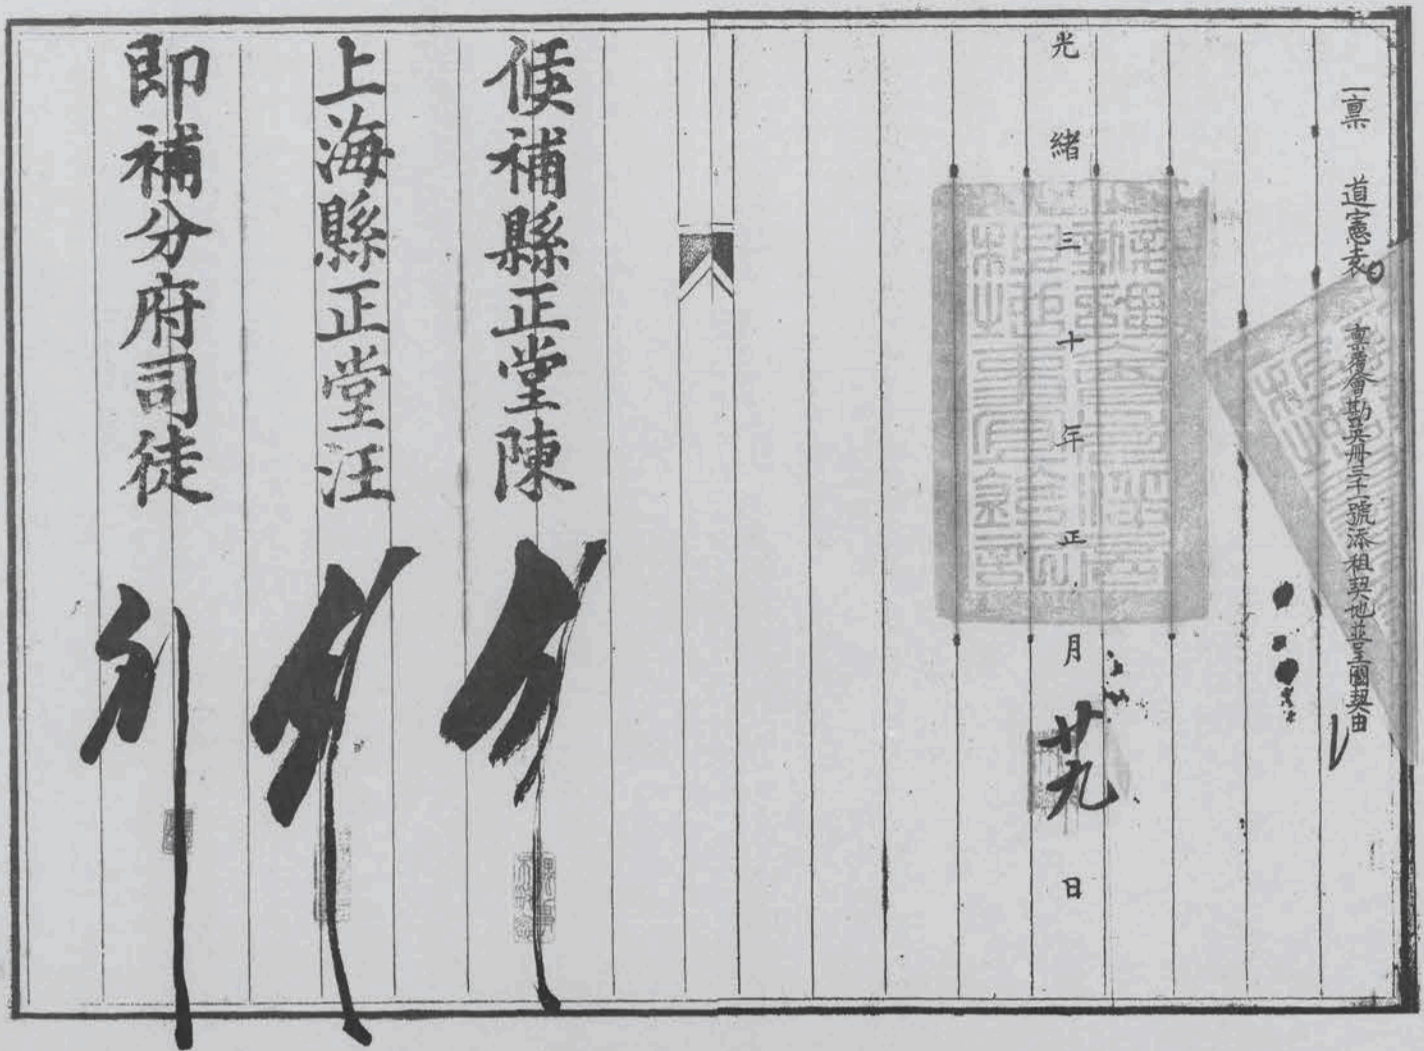 一稟　道憲袁　稟覆會勘英册三十一號添租契地並呈圖契由
光緒三十年正月廿九日
候補縣正堂陳
上海縣正堂汪
即補分府司徒